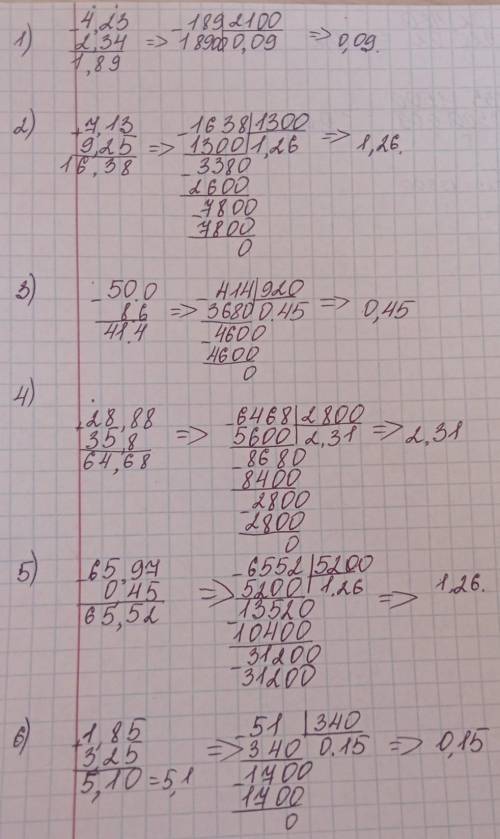 1) -4,23 -189|2100
2,34 => 18900|0,09 => 0,09.
1,89
2) +7,13 -1638|1300
9,25 => 1300|1,26 => 1,26.
16,38 -3380
2600
-7800
7800
0
3) -50.0 -414|920
8.6 => 3680|0.45 => 0,45
41.4 -4600
4600
0
4) +28,88 -6468|2800
35,8 => 5600|2,31 => 2,31
64,68 -8680
8400
-2800
2800
0
5) -65,97 -6552|5200
0,45 => 5200|1.26 => 1,26.
65,52 -13520
10400
-31200
31200
6) +1,85 -51|340
3,25 => 340|0.15 => 0,15
5,10=5,1 -1700
1700
0